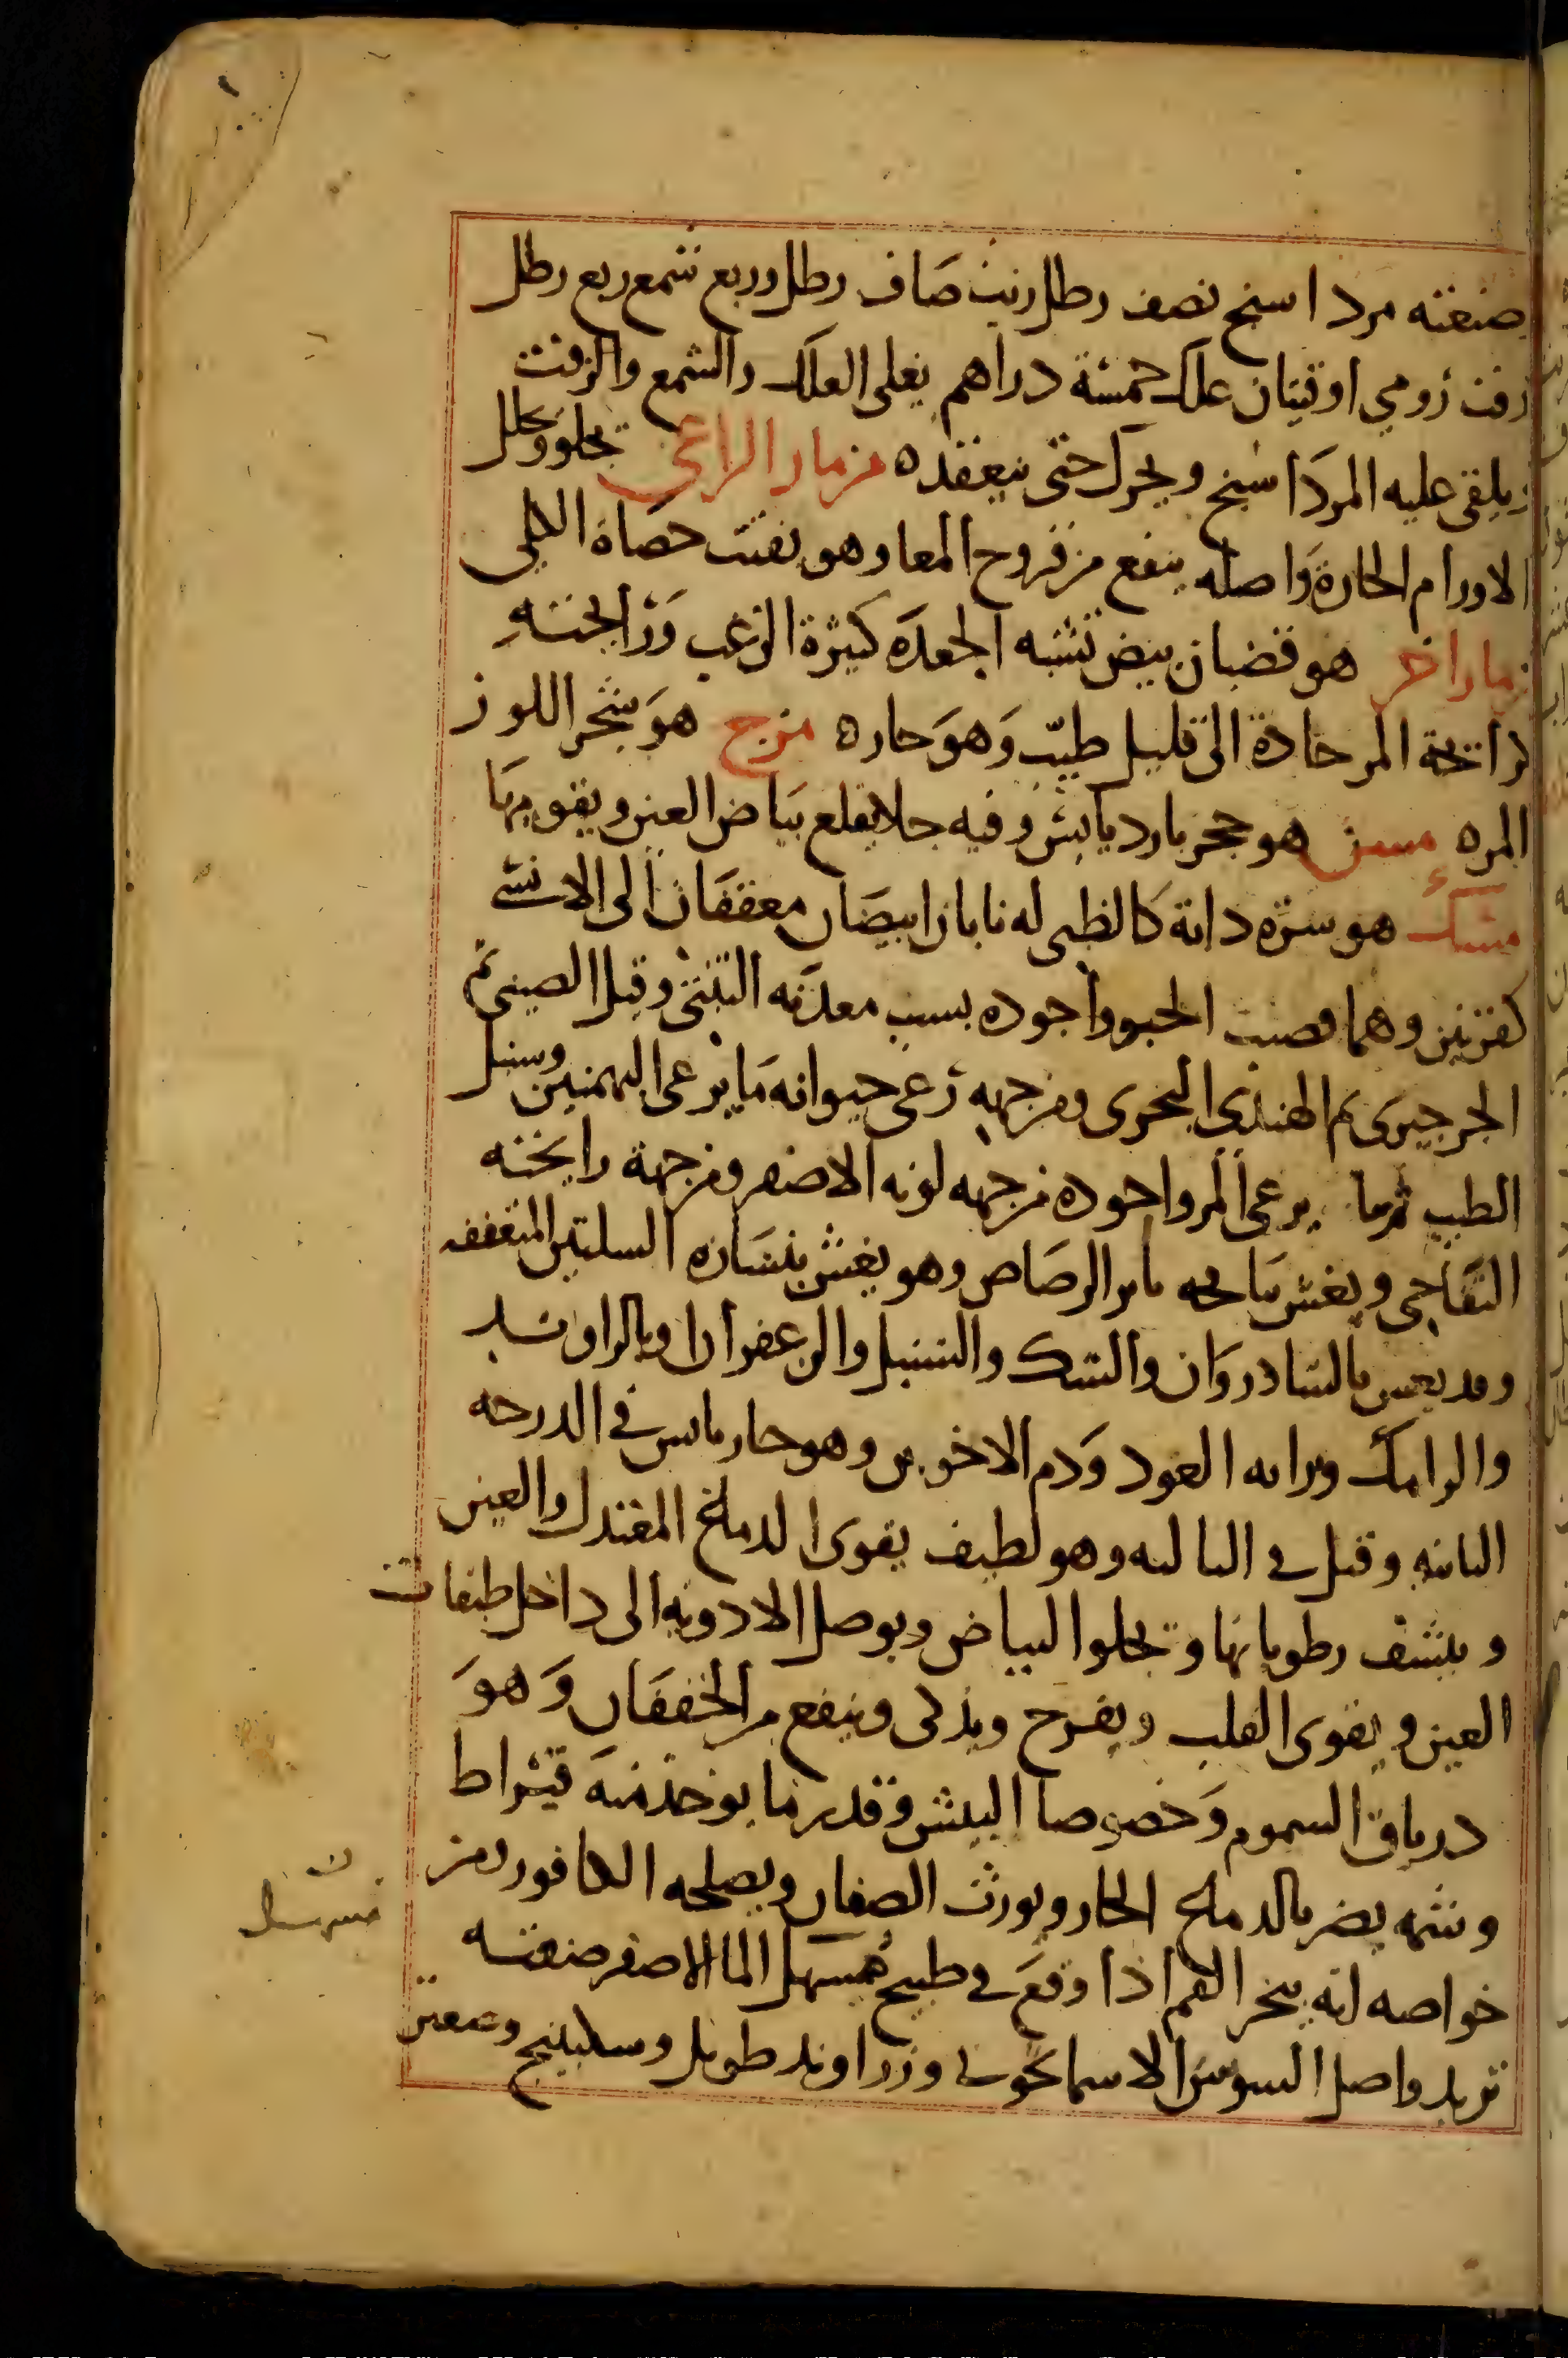 صنعته مرداسنج نصف رطل زيت صاف رطل وربع شمع ربع رطل
زفت رومي اوقيتان علك خمسة دراهم يغلى العلك والشمع والزفت
ويلقى عليه المرداسنج ويحرك حتى ينعقد ه مزمار الراعي تجلو وتحلل
الاورام الحارة واصله ينفع من قروح المعا وهو يفتت حصاة الكلى
زمار اخر هو قضبان بيض تشبه الجعده كثيرة الزغب ورائحته
كرائحة المر حادة الى قليل طيب وهو حار ه مزج هو شجر اللوز
المر ه مسن هو حجر بارد يابس وفيه جلا يقلع بياض العين ويقويها
مسك هو سرة دابة كالظبى له نابان ابيضان معقفان الى الانسي
كقرنين وهما قصب الحبو واجوده بسبب معدنه التبتى وقيل الصينى ثم
الجرجيرى ثم الهندى البحرى ومن جهه رعى حيوانه ما يرعى البهمنين وسنبل
الطيب ثم ما يرعى المر واجوده من جهه لونه الاصفر ومن جهة رايحته
التفاحى ويغش بالرصاص وهو يغش
وقد يغش بالشادروان والسك والسنبل والزعفران وبالراوند
والرامك وبرايه العود ودم الاخوين وهو حار يابس في الدرجه
الثانيه وقيل في الثالثه وهو لطيف يقوى الدماغ المعتدل والعين
وينشف رطوباتها وتجلوا البياض ويوصل الادويه الى داخل طبقات
العين ويقوى القلب ويفرح ويذكى وينفع من الخفقان وهو
درياق السموم وخصوصا البيش وقدر ما يوخذ منه قيراط
وشمه يضر بالدماغ الحار ويورث الصفار ويصلحه الكافور ومن
خواصه انه يبخر الفم اذا وقع في طبيخ مسهل الما الاصفر صنعته
تربد واصل السوسن الاسمانجونى وزراوند طويل وسكبينج